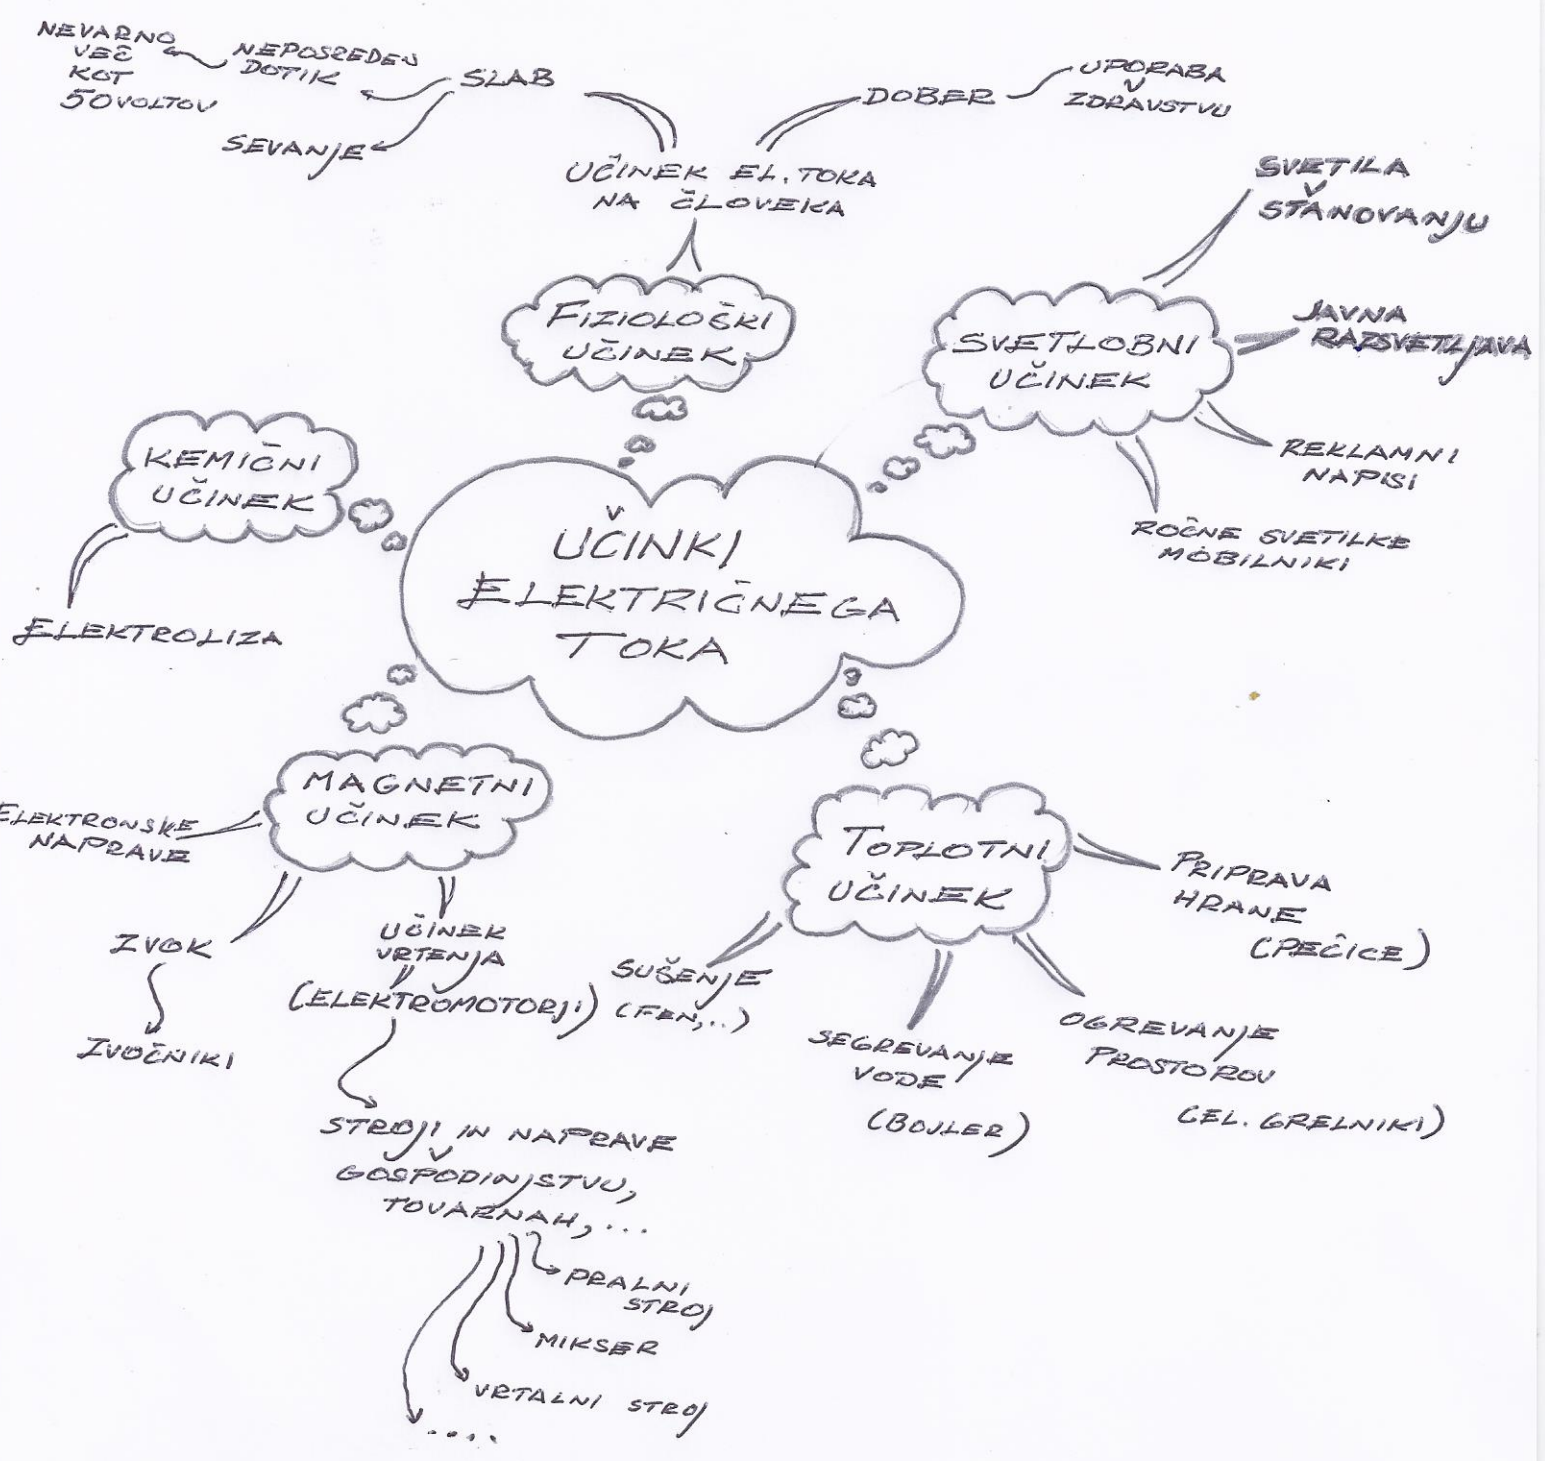 NEVARNO
VEČ
KOT
50 VOLTOV
NEPOSREDEN
DOTIK
SLAB
SEVANJE
DOBER
UPORABA
V
ZDRAVSTVU
UČINEK EL. TOKA
NA ČLOVEKA
FIZIOLOŠKI
UČINEK
SVETILA
V
STANOVANJU
SVETLOBNI
UČINEK
JAVNA
RAZSVETLJAVA
REKLAMNI
NAPISI
ROČNE SVETILKE
MOBILNIKI
KEMIČNI
UČINEK
ELEKTROLIZA
UČINKI
ELEKTRIČNEGA
TOKA
MAGNETNI
UČINEK
ELEKTRONSKE
NAPRAVE
ZVOK
ZVOČNIKI
UČINEK
VRTENJA
(ELEKTROMOTORJI)
STROJI IN NAPRAVE
V
GOSPODINJSTVU,
TOVARNAH, ...
PRALNI
STROJ
MIKSER
VRTALNI STROJ
....
TOPLOTNI
UČINEK
PRIPRAVA
HRANE
(PEČICE)
SUŠENJE
(FEN,..)
SEGREVANJE
VODE
(BOJLER)
OGREVANJE
PROSTOROV
(EL. GRELNIKI)